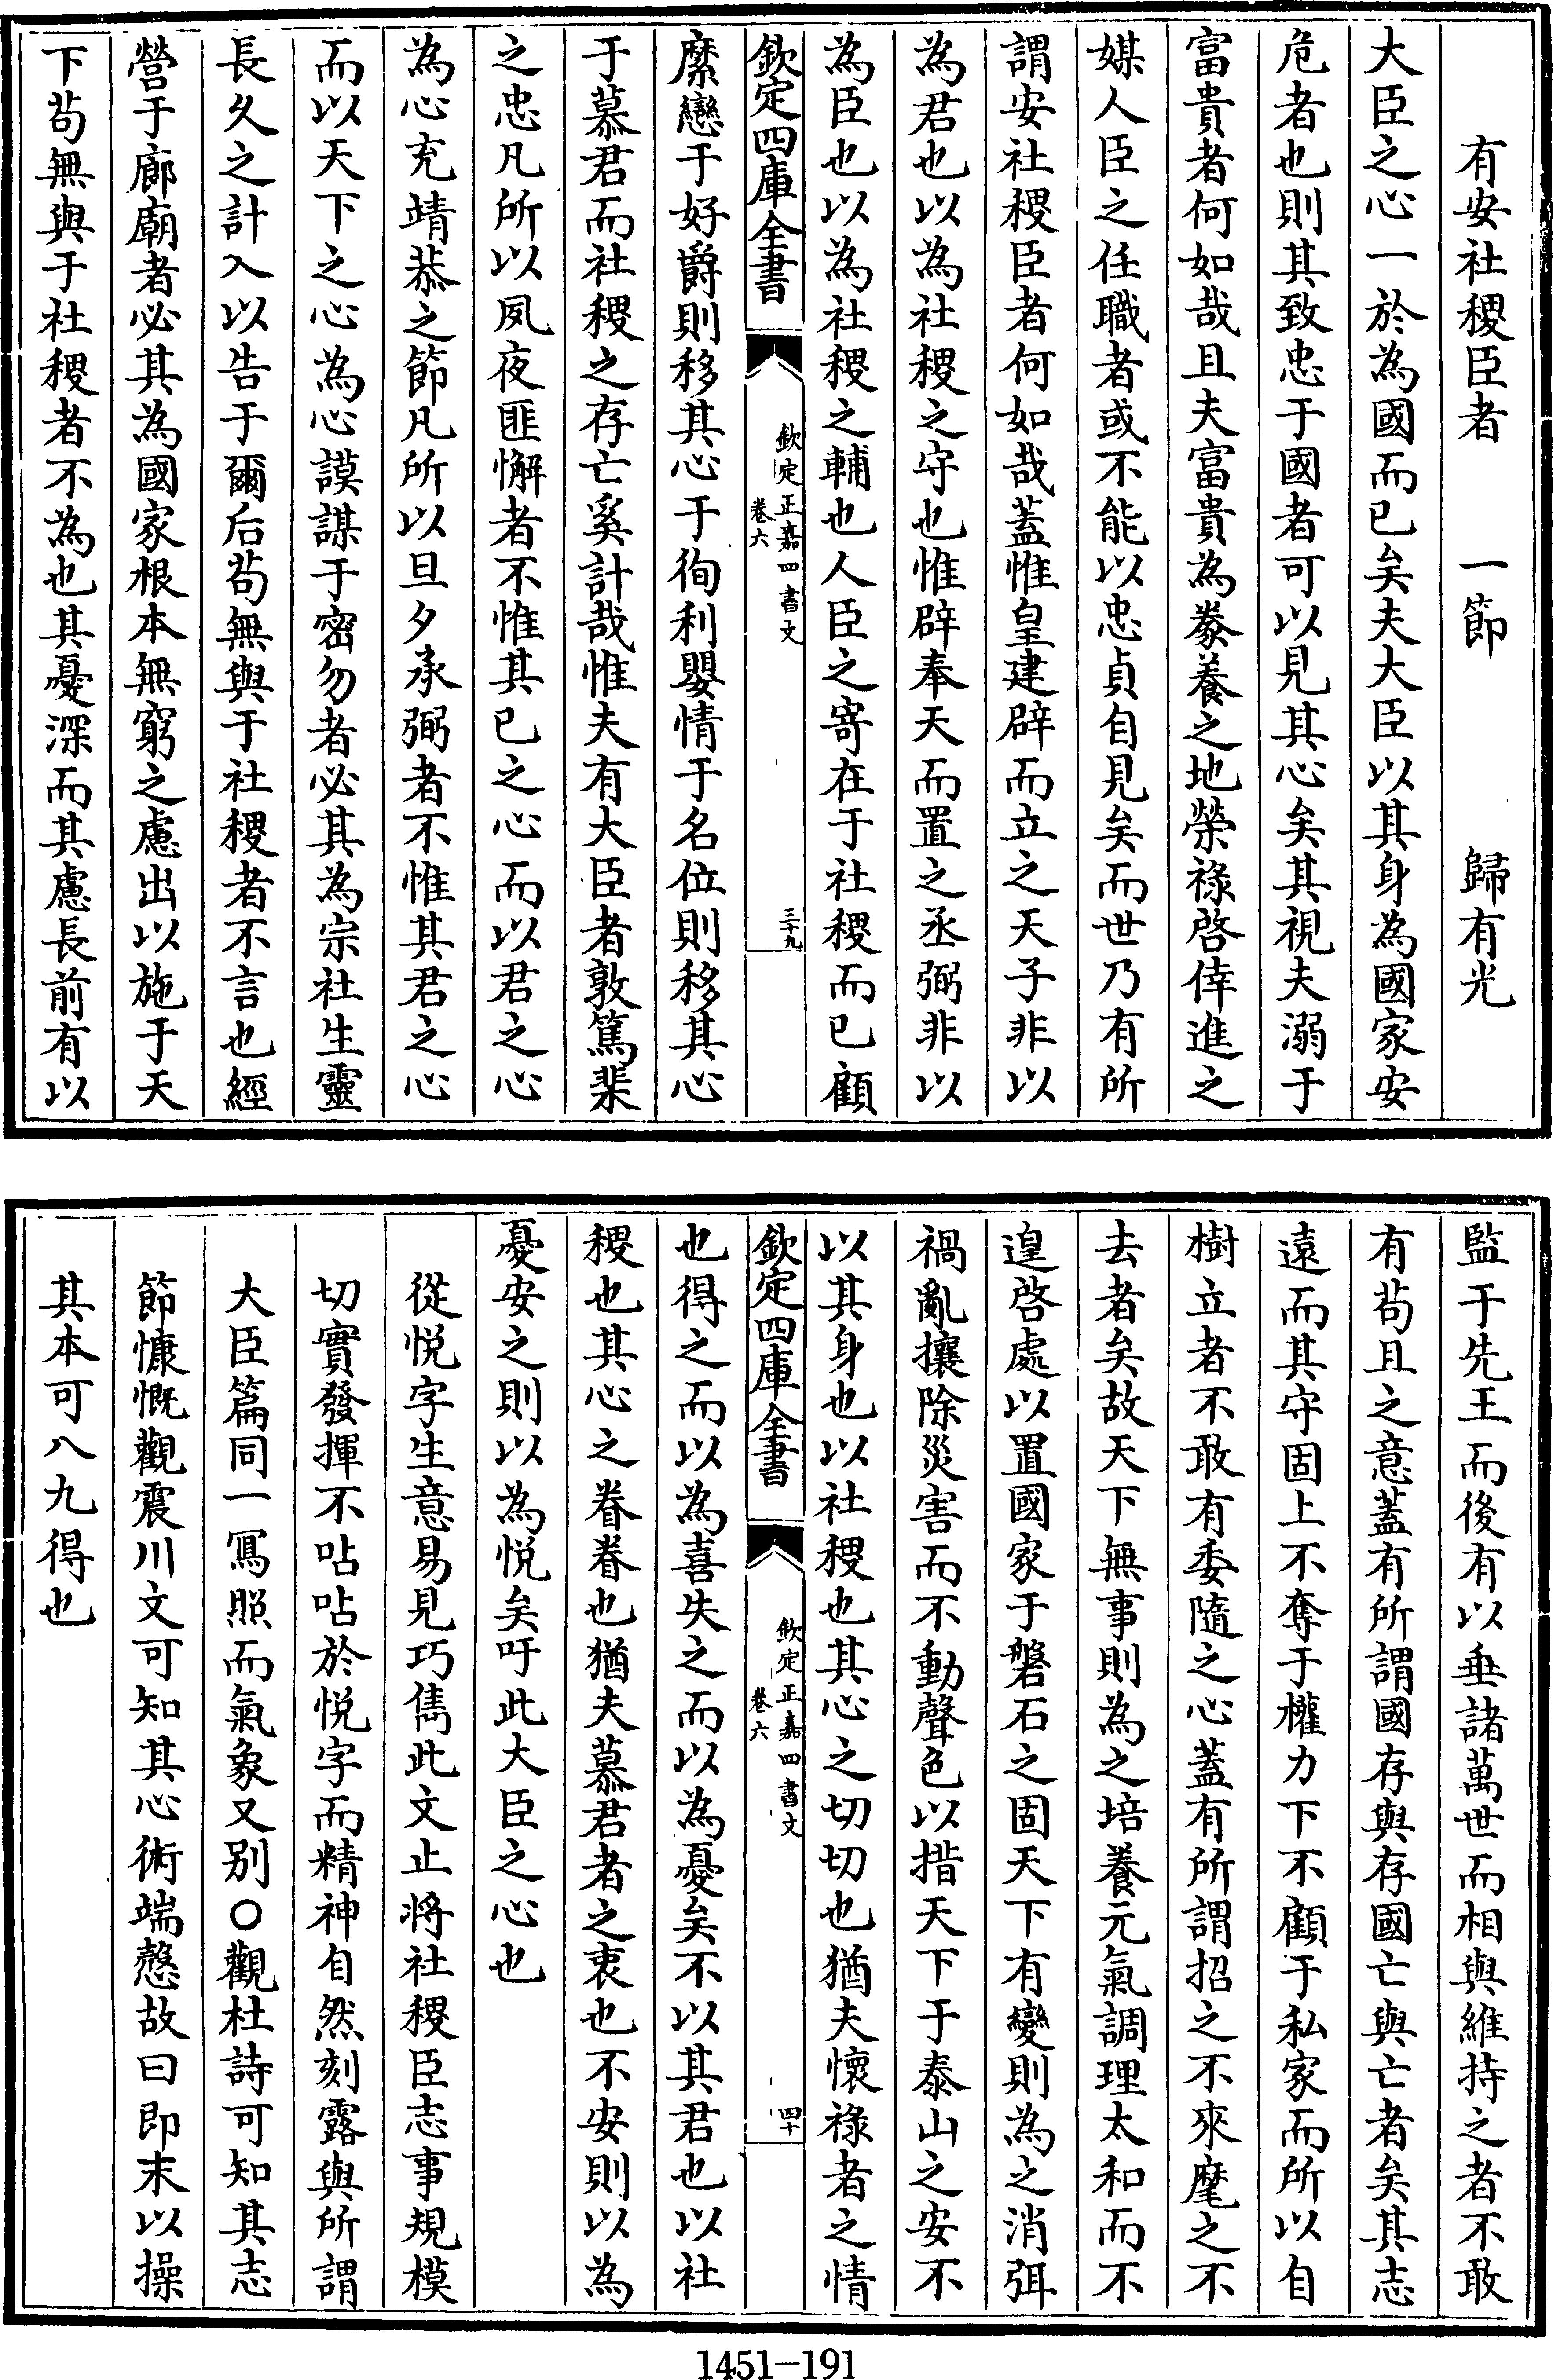 有安社稷臣者　一節　歸有光
大臣之心一於為國而已矣夫大臣以其身為國家安
危者也則其致忠于國者可以見其心矣其視夫溺于
富貴者何如哉且夫富貴為豢養之地榮祿啓倖進之
媒人臣之任職者或不能以忠貞自見矣而世乃有所
謂安社稷臣者何如哉蓋惟皇建辟而立之天子非以
為君也以為社稷之守也惟辟奉天而置之丞弼非以
為臣也以為社稷之輔也人臣之寄在于社稷而已顧
欽定四庫全書　欽定正嘉四書文　卷六　三十九
縻戀于好爵則移其心于徇利嬰情于名位則移其心
于慕君而社稷之存亡奚計哉惟夫有大臣者敦篤棐
之忠凡所以夙夜匪懈者不惟其已之心而以君之心
為心充靖恭之節凡所以旦夕承弼者不惟其君之心
而以天下之心為心謨謀于密勿者必其為宗社生靈
長久之計入以告于爾后茍無與于社稷者不言也經
營于廊廟者必其為國家根本無窮之慮出以施于天
下茍無與于社稷者不為也其憂深而其慮長前有以
監于先王而後有以垂諸萬世而相與維持之者不敢
有茍且之意蓋有所謂國存與存國亡與亡者矣其志
遠而其守固上不奪于權力下不顧于私家而所以自
樹立者不敢有委隨之心蓋有所謂招之不來麾之不
去者矣故天下無事則為之培養元氣調理太和而不
遑啓處以置國家于磐石之固天下有變則為之消弭
禍亂攘除災害而不動聲色以措天下于泰山之安不
以其身也以社稷也其心之切切也猶夫懷祿者之情
欽定四庫全書　欽定正嘉四書文　卷六　四十
也得之而以為喜失之而以為憂矣不以其君也以社
稷也其心之眷眷也猶夫慕君者之衷也不安則以為
憂安之則以為悅矣吁此大臣之心也
從悅字生意易見巧雋此文止將社稷臣志事規模
切實發揮不呫呫於悅字而精神自然刻露與所謂
大臣篇同一寫照而氣象又別○觀杜詩可知其志
節慷慨觀震川文可知其心術端慤故曰即末以操
其本可八九得也
1451-191